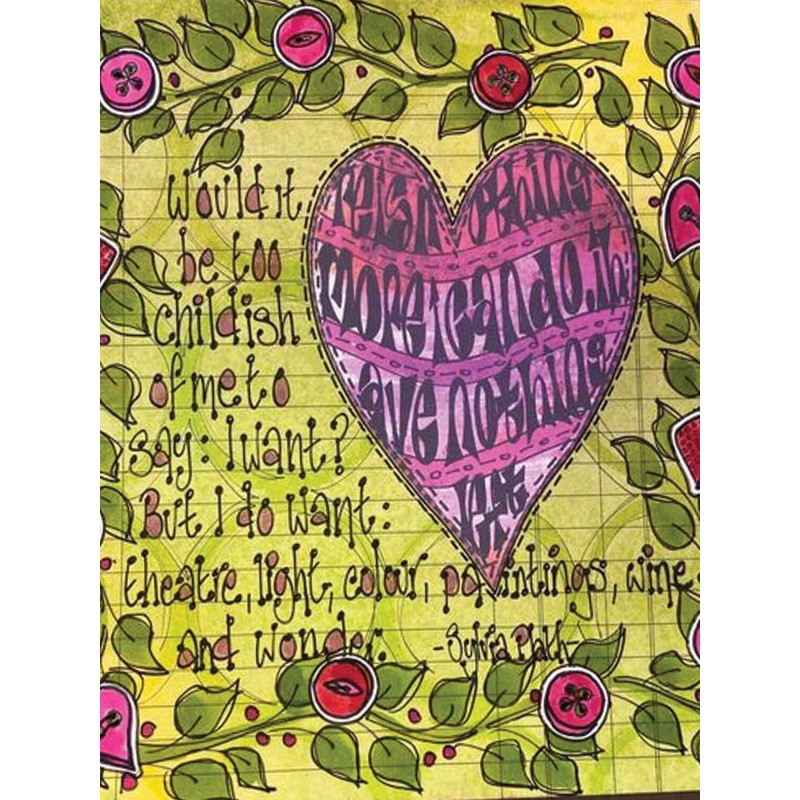 Would it
be too
childish
of me to
say: I want?
But I do want:
theatre, light, colour, paintings, wine
and wonder.
-Sylvia Plath
reisn othing
more i can do. ih
ave nothing
left